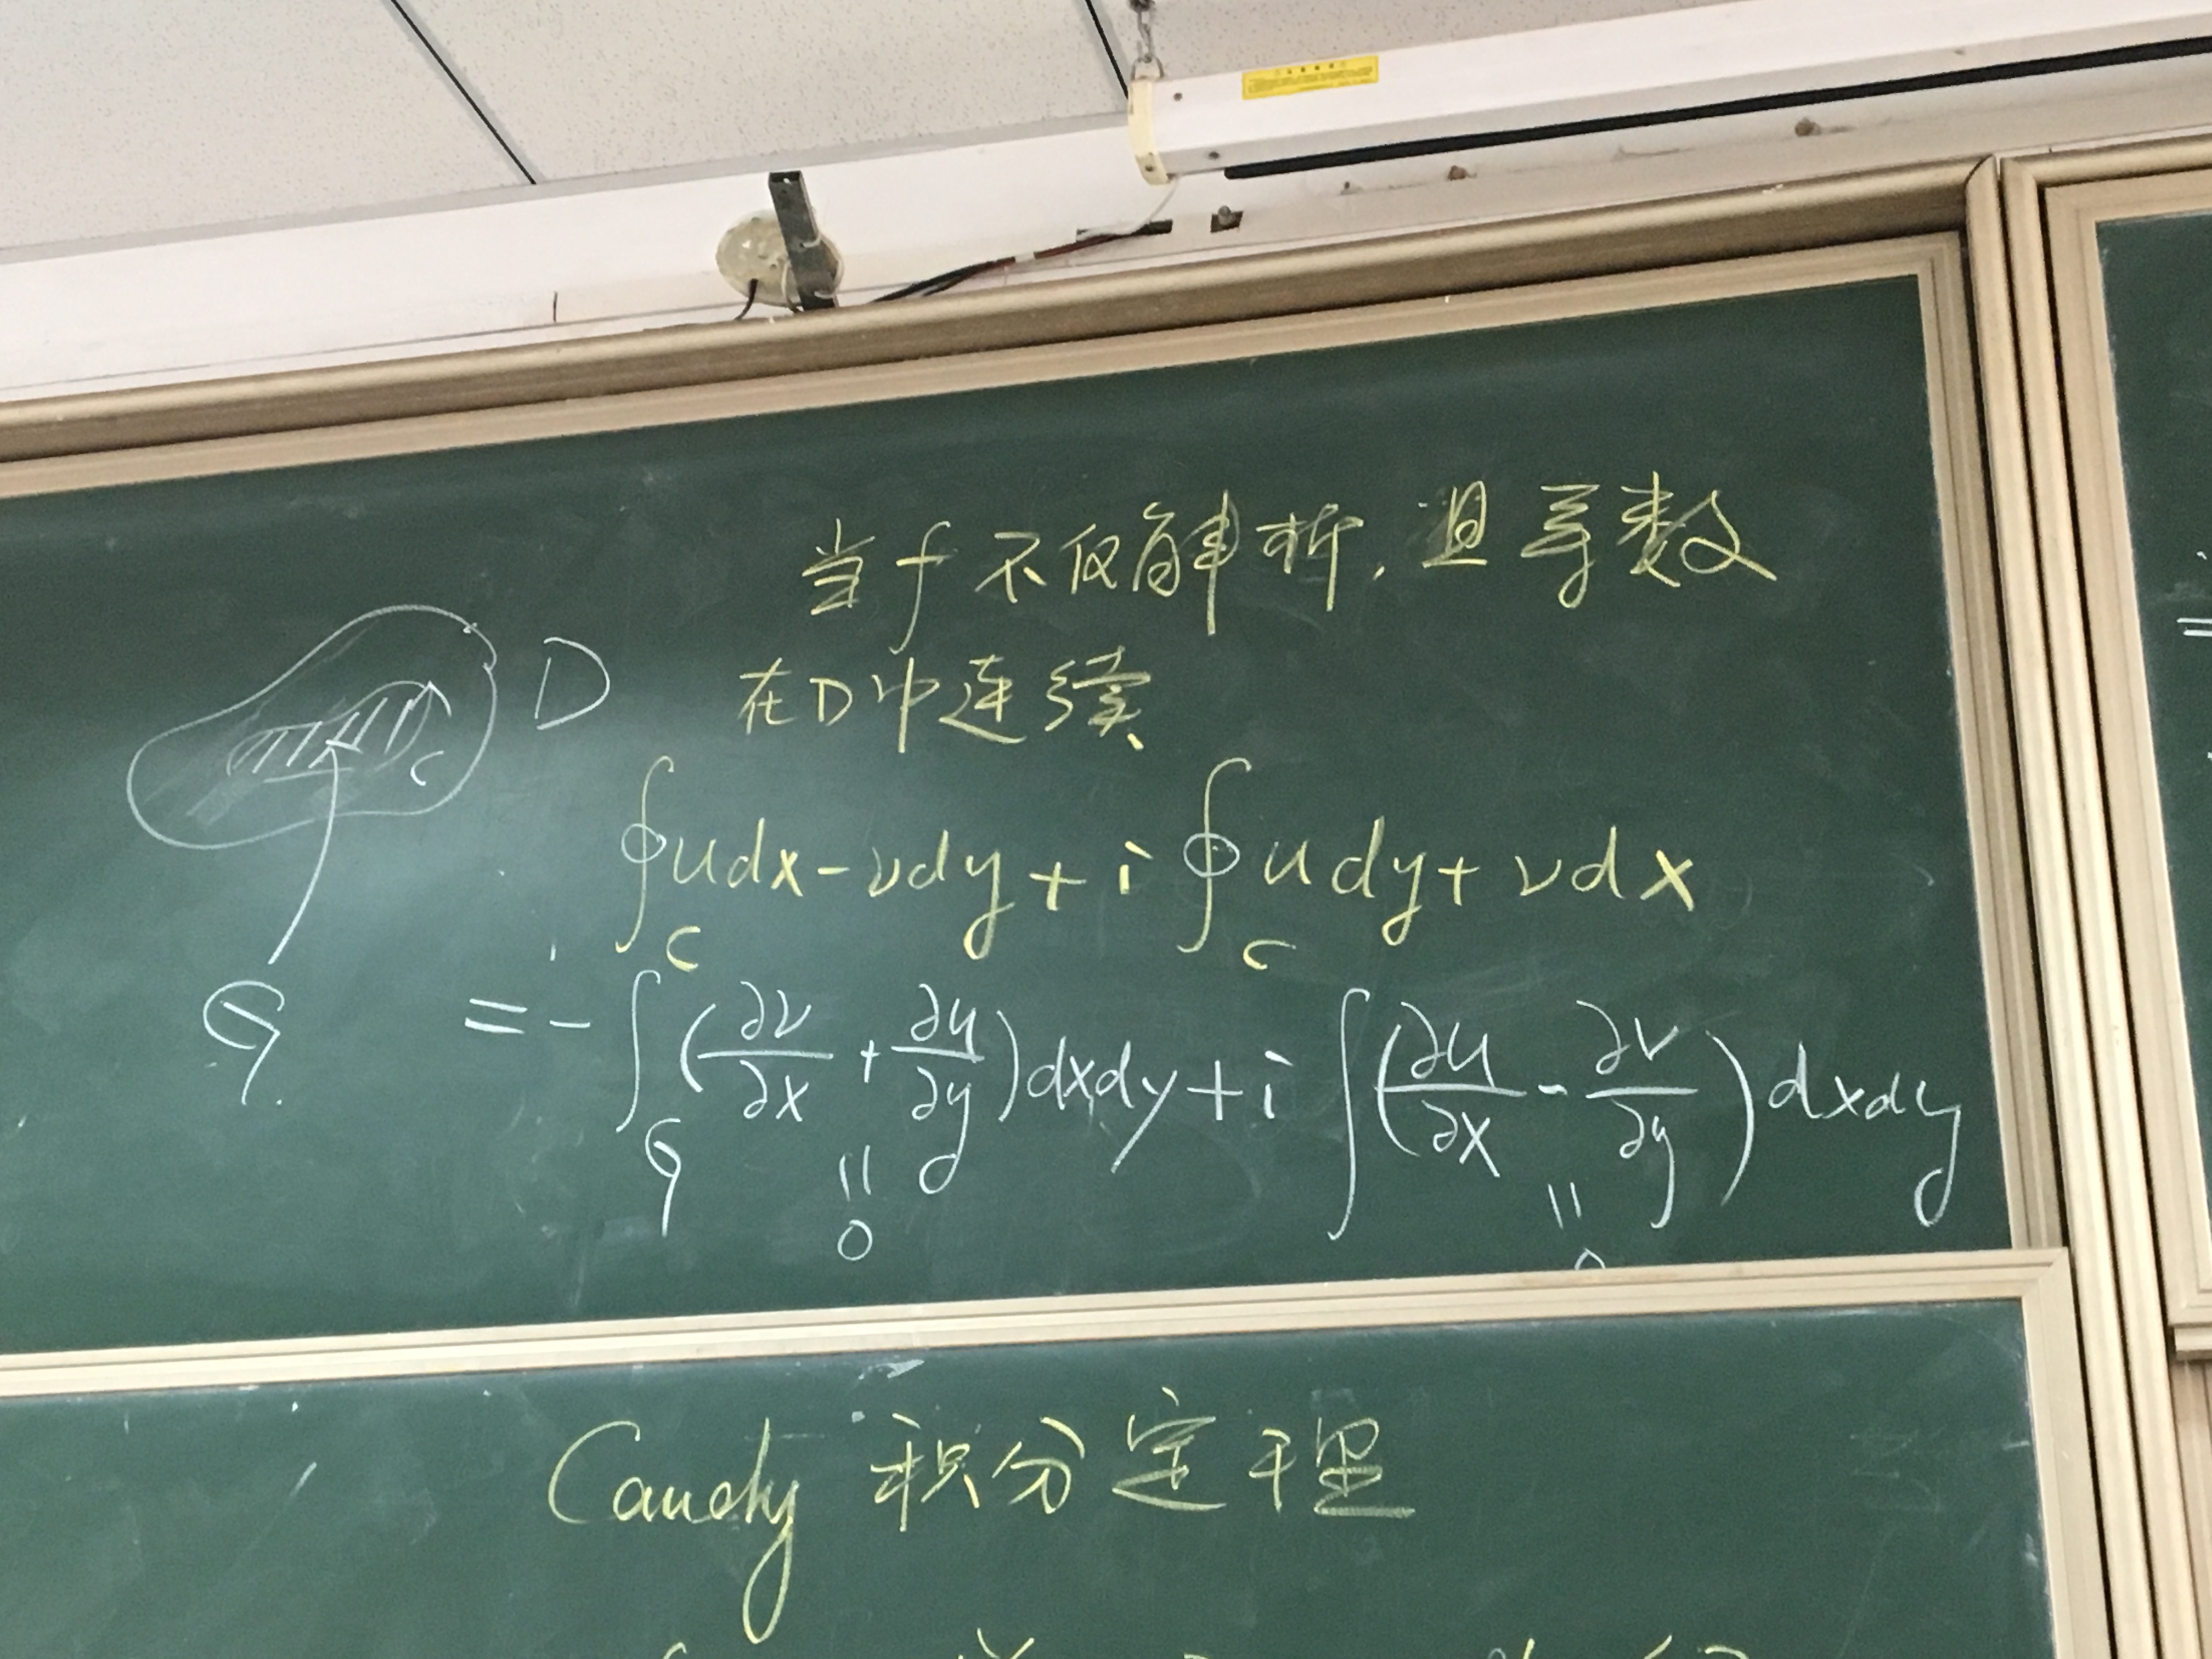 当f不仅解析,且导数
D
在D中连续
C
∮_C udx-vdy+i∮_C udy+vdx
G =-∫_G(∂v/∂x+∂u/∂y)dxdy+i∫(∂u/∂x-∂v/∂y)dxdy
=0 =0
Cauchy 积分定理